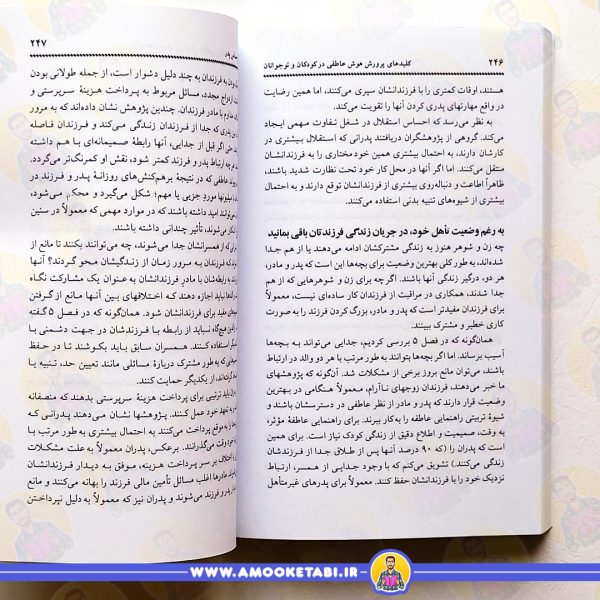 ۲۴۶ کلیدهای پرورش هوش عاطفی در کودکان و نوجوانان
هستند، اوقات کمتری را با فرزندانشان سپری می‌کنند، اما همین رضایت
در واقع مهارتهای پدری کردن آنها را تقویت می‌کند.
به نظر می‌رسد که احساس استقلال در شغل تفاوت مهمی ایجاد
می‌کند. گروهی از پژوهشگران دریافتند پدرانی که استقلال بیشتری در
کارشان دارند، به احتمال بیشتری همین خودمختاری را به فرزندانشان
منتقل می‌کنند. اما اگر آنها در محل کار خود تحت نظارت شدید باشند،
ظاهراً اطاعت و دنباله‌روی بیشتری از فرزندانشان توقع دارند و به احتمال
بیشتری از شیوه‌های تنبیه بدنی استفاده می‌کنند.
به رغم وضعیت تأهل خود، در جریان زندگی فرزندتان باقی بمانید
چه زن و شوهر هنوز به زندگی مشترکشان ادامه می‌دهند یا از هم جدا
شده‌اند، به طور کلی بهترین وضعیت برای بچه‌ها این است که پدر و مادر،
هر دو، درگیر زندگی آنها باشند. اگر چه برای زن و شوهرهایی که از هم
جدا شدند، همکاری در مراقبت از فرزندان کار ساده‌ای نیست، معمولاً
برای فرزندان مفیدتر است که پدر و مادر، بزرگ کردن فرزند را به صورت
کاری خطیر و مشترک ببینند.
همان‌گونه که در فصل ۵ بررسی کردیم، جدایی می‌تواند به بچه‌ها
آسیب برساند. اما اگر بچه‌ها بتوانند به طور مرتب با هر دو والد در ارتباط
باشند، می‌توان مانع بروز برخی از مشکلات شد. آن‌گونه که پژوهشهای
ما خبر می‌دهند، فرزندان زوجهای ناآرام، معمولاً هنگامی در بهترین
وضعیت قرار دارند که پدر و مادر از نظر عاطفی در دسترسشان باشند و
شیوهٔ تربیتی راهنمایی عاطفه را به‌کار ببرند. برای راهنمایی عاطفهٔ مؤثر،
به وقت، صمیمیت و اطلاع دقیق از زندگی کودک نیاز است. برای همین
است که پدران را (که ۹۰ درصد آنها پس از طلاق جدا از فرزندانشان
زندگی می‌کنند.) تشویق می‌کنم که با وجود جدایی از همسر، ارتباط
نزدیک خود را با فرزندانشان حفظ کنند. معمولاً برای پدرهای غیرمتأهل
پدر ۲۴۷
بودن به فرزندان به چند دلیل دشوار است، از جمله طولانی بودن
مجدد، مسائل مربوط به پرداخت هزینهٔ سرپرستی و
با مادر فرزندان. چندین پژوهش نشان داده‌اند که به مرور
پدری که جدا از فرزندان زندگی می‌کند و فرزندان فاصله
اگر قبل از جدایی، آنها رابطهٔ صمیمانه‌ای با هم داشته
چه ارتباط پدر و فرزند کمتر شود، نقش او کمرنگ‌تر می‌گردد.
عاطفی که در نتیجهٔ برهم‌کنش‌های روزانهٔ پدر و فرزند در
جزیی یا مهم؛ شکل می‌گیرد و محکم می‌شود،
می‌توانند امید داشته باشند که در موارد مهمی که معمولاً در سنین
تأثیر چندانی داشته باشند.
از همسرانشان جدا می‌شوند، چه می‌توانند بکنند تا مانع از
فرزندان به مرور زمان از زندگیشان محو گردند؟ آنها
رابطه‌شان با مادر فرزندانشان به عنوان یک مشارکت نگاه
نباید اجازه دهند که اختلافهای بین آنها مانع از گرفتن
صحیح برای فرزندانشان شود. همان‌گونه که در فصل ۵ گفته
هیچ‌گاه نباید از رابطه با فرزندشان در جهت دشمنی با
استفاده کنند. همسران سابق باید بکوشند تا در حفظ
که به طور مشترک دربارهٔ مسائلی مانند تعیین حد، تنبیه یا
دارند، از یکدیگر حمایت کنند.
باید ترتیبی برای پرداخت هزینهٔ سرپرستی بدهند که منصفانه
تعهد خود عمل کنند. پژوهشها نشان می‌دهند پدرانی که
پرداخت می‌کنند به احتمال بیشتری به طور مرتب با
وقت می‌گذرانند. برعکس، پدران معمولاً به علت مشکلات
اختلاف بر سر پرداخت هزینه، موفق به دیدار فرزندانشان
مادرها اغلب مسائل تأمین مالی فرزند را بهانه می‌کنند و مانع
پدر و فرزند می‌شوند و پدران نیز که معمولاً به دلیل نپرداختن
WWW.AMOOKETABI.IR